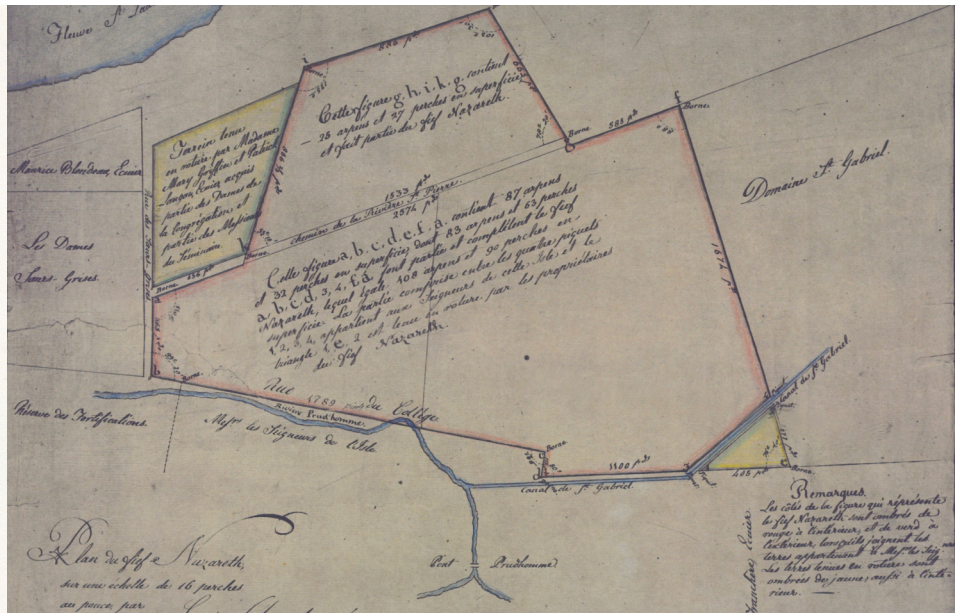 Fleuve St
Maurice Blondeau, Ecuier
Les Dames
Sœurs Grises.
Terrein tenu
en roture par Madame
Mary Griffin et Patrick
Ecuier acquis
partie des Dames de
la congrégation et
partie des Messieurs
du Séminaire
Cette figure g. h. i. k. g. contient
25 arpens et 27 perches en superficie
et fait partie du fief Nazareth.
1533 pds
chemin de la Rivière St Pierre.
2574 pds
Cette figure a, b, c, d, e, f, a, contient 87 arpens
et 32 perches en superficie, dont 83 arpens et 63 perches
a, b, c, d, 3, 4, f, a, font partie et complètent le fief
Nazareth, lequel égale 108 arpens et 90 perches en
superficie. La partie comprise entre les quatre piquets
1, 2, 3, 4, appartient aux Seigneurs de cette Isle et le
triangle 1, e, 2 est tenu en roture par les propriétaires
du fief Nazareth.
Borne.
Borne.
Domaine St Gabriel.
585 pds
1674 pds
Canal de St Gabriel.
Borne
Borne
Borne.
Rue 1789 du Collége
Ruisseau Prudhomme.
Réserve des Fortifications.
Messrs les Seigneurs de l'Isle
Borne.
1100 pds
Canal de St Gabriel.
405 pds
Borne.
Pont Prudhomme
Remarques.
Les côtés de la figure qui réprésente
le fief Nazareth sont ombrés de
rouge à l'interieur, et de verd à
l'exterieur lorsqu'ils joignent les
terres appartenant à Messrs les Seigrs
les terres tenues en roture sont
ombrées de jaune, aussi à l'inté-
rieur.
Ecuier
Plan du fief Nazareth,
sur une echelle de 16 perches
au pouce, par